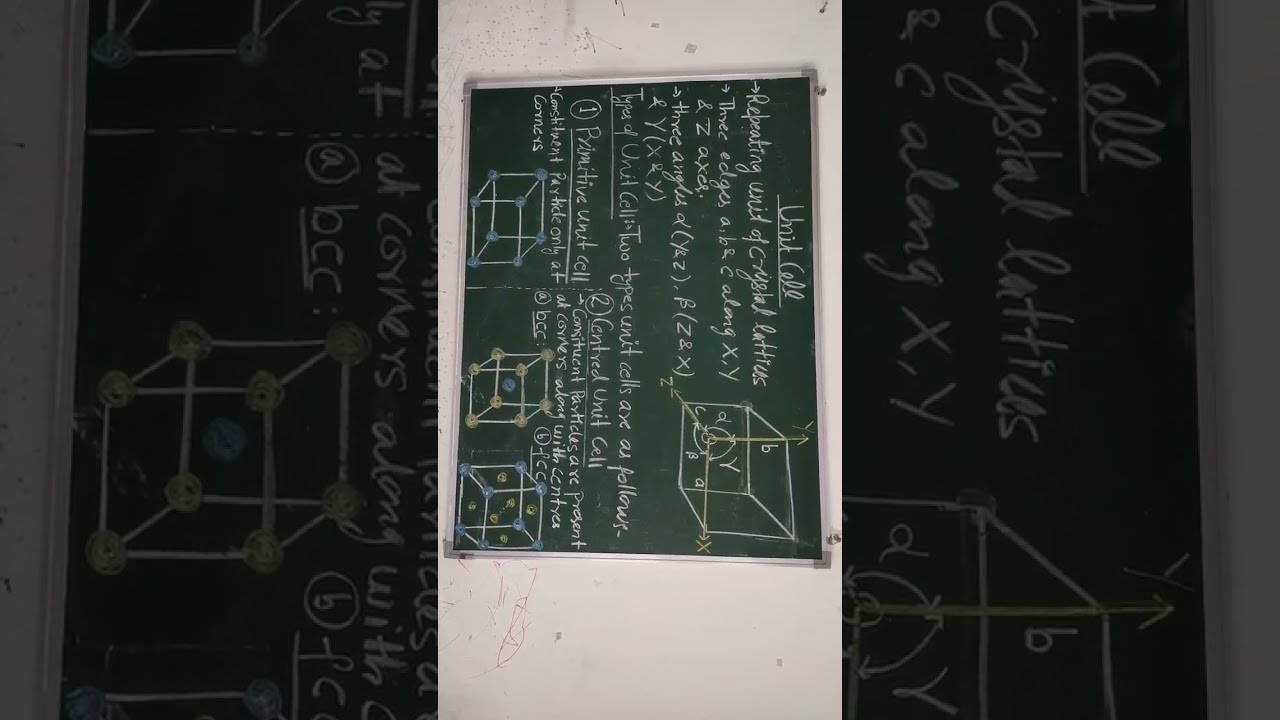 Unit Cell
→ Repeating unit of crystal lattices
→ Three edges a, b & c along X, Y
& Z axes.
→ three angles α (Y&Z). β (Z & X)
& γ (X & Y)
Types of Unit Cell:- Two types unit cells are as follows-
① Primitive unit cell
→ Constituent Particle only at
corners
② Centred Unit Cell
→ Constituent Particles are present
at corners along with centres
ⓐ bcc:
ⓑ fcc
Y
b
α
γ
c
β
a
Z
X